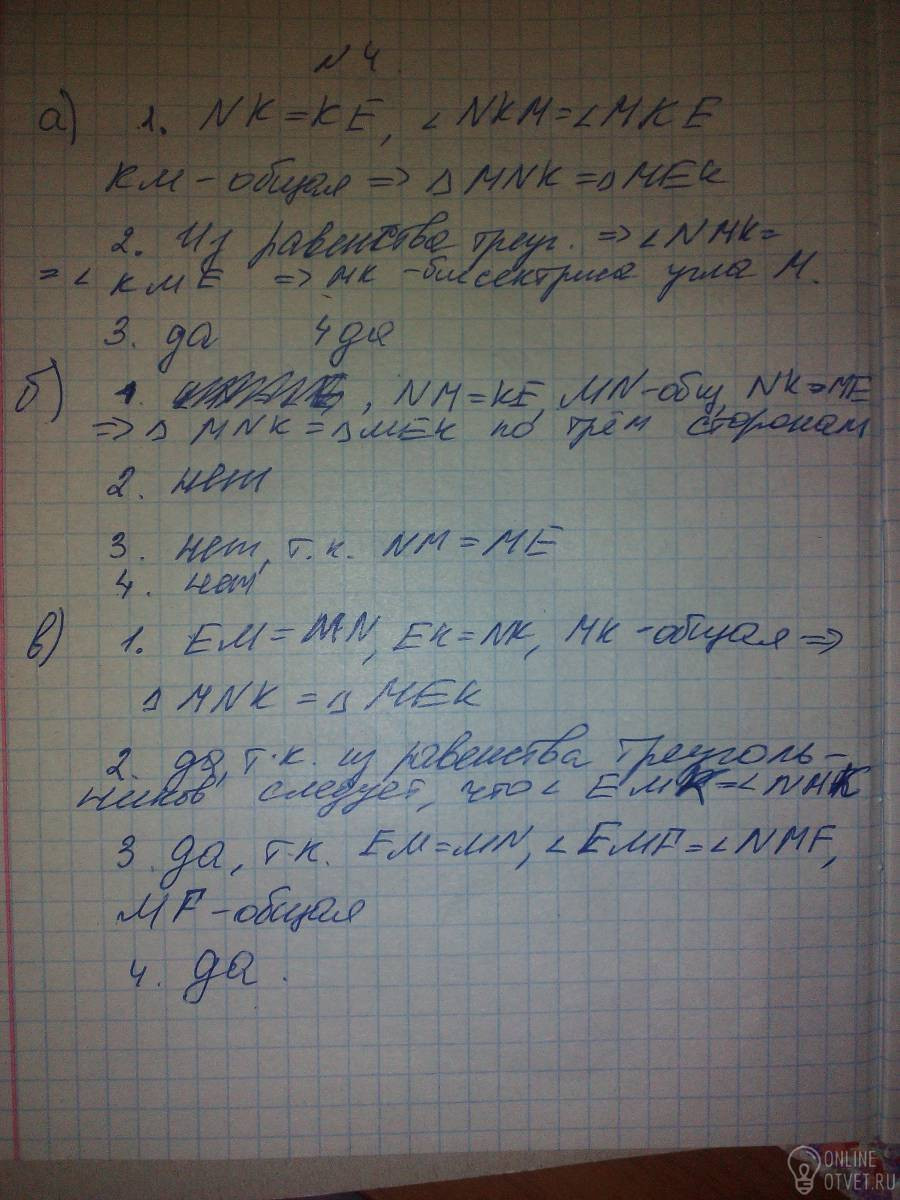 N 4.
а) 1. NK = KE, ∠NKM = ∠MKE
KM - общая => ΔMNK = ΔMEK
2. Из равенства треуг. => ∠NMK =
= ∠KME => MK - биссектриса угла M.
3. да 4 да
б) 1. , NM = KE, MN - общ, NK = ME
=> Δ MNK = ΔMEK по трём сторонам
2. нет
3. нет, т.к. NM = ME
4. нет
в) 1. EM = MN, EK = NK, MK - общая =>
Δ MNK = Δ MEK
2. да, т.к. из равенства треуголь-
ников следует, что ∠ EMK = ∠NMK
3. да, т.к. EM = MN, ∠EMF = ∠NMF,
MF - общая
4. да.
ONLINE
OTVET.RU